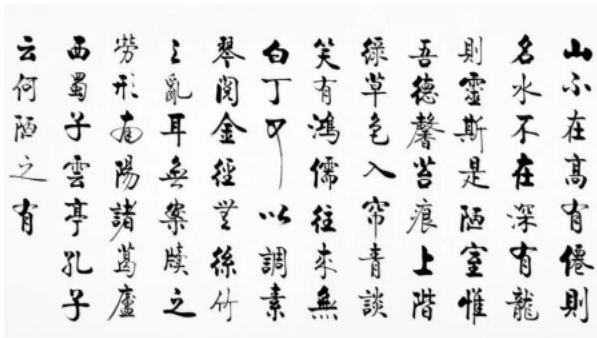 山不在高有僊則
名水不在深有龍
則靈斯是陋室惟
吾德馨苔痕上階
綠草色入帘青談
笑有鴻儒往來無
白丁可以調素
琴閱金經無絲竹
之亂耳無案牘之
勞形南陽諸葛廬
西蜀子雲亭孔子
云何陋之有